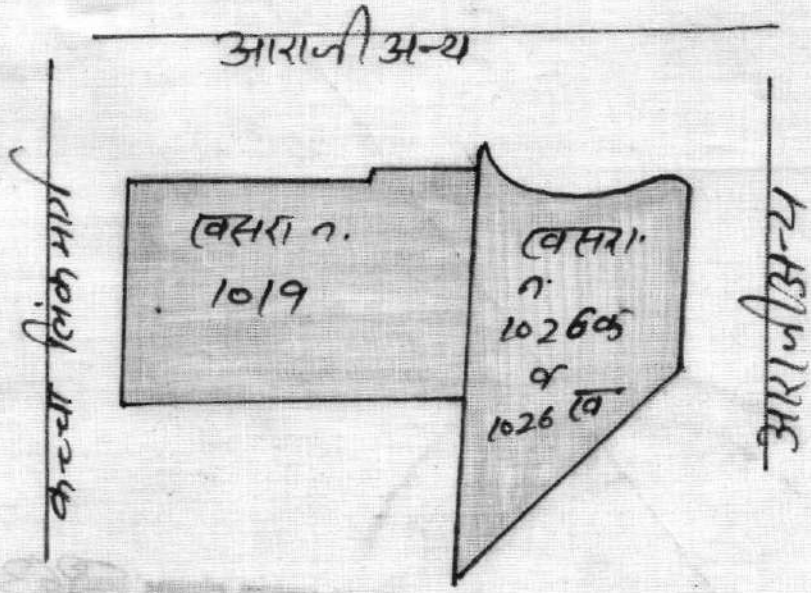 आराजी अन्य
कच्चा लिंक मार्ग
खसरा न.
1019
खसरा.
न.
1026क
व
1026 ख
आराजी अन्य